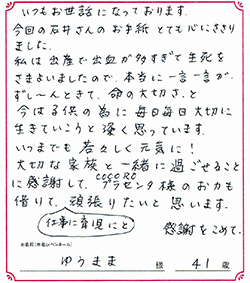 いつもお世話になっております。
今回の石井さんのお手紙とても心にささり
ました。
私は出産で出血が多すぎて生死を
さまよいましたので、本当に一言一言が、
ずし〜んときて、命の大切さ、と
今はる供の為に毎日毎日大切に
生きていこうと深く思っています。
いつまでも若々しく元気に!
大切な家族と一緒に過ごせること
に感謝して、プラセンタ様のお力も
COCORO
借りて、頑張りたいと思います。
仕事に育児にと
感謝をこめて。
お名前(本名orペンネーム)
ゆうまま 様 41歳